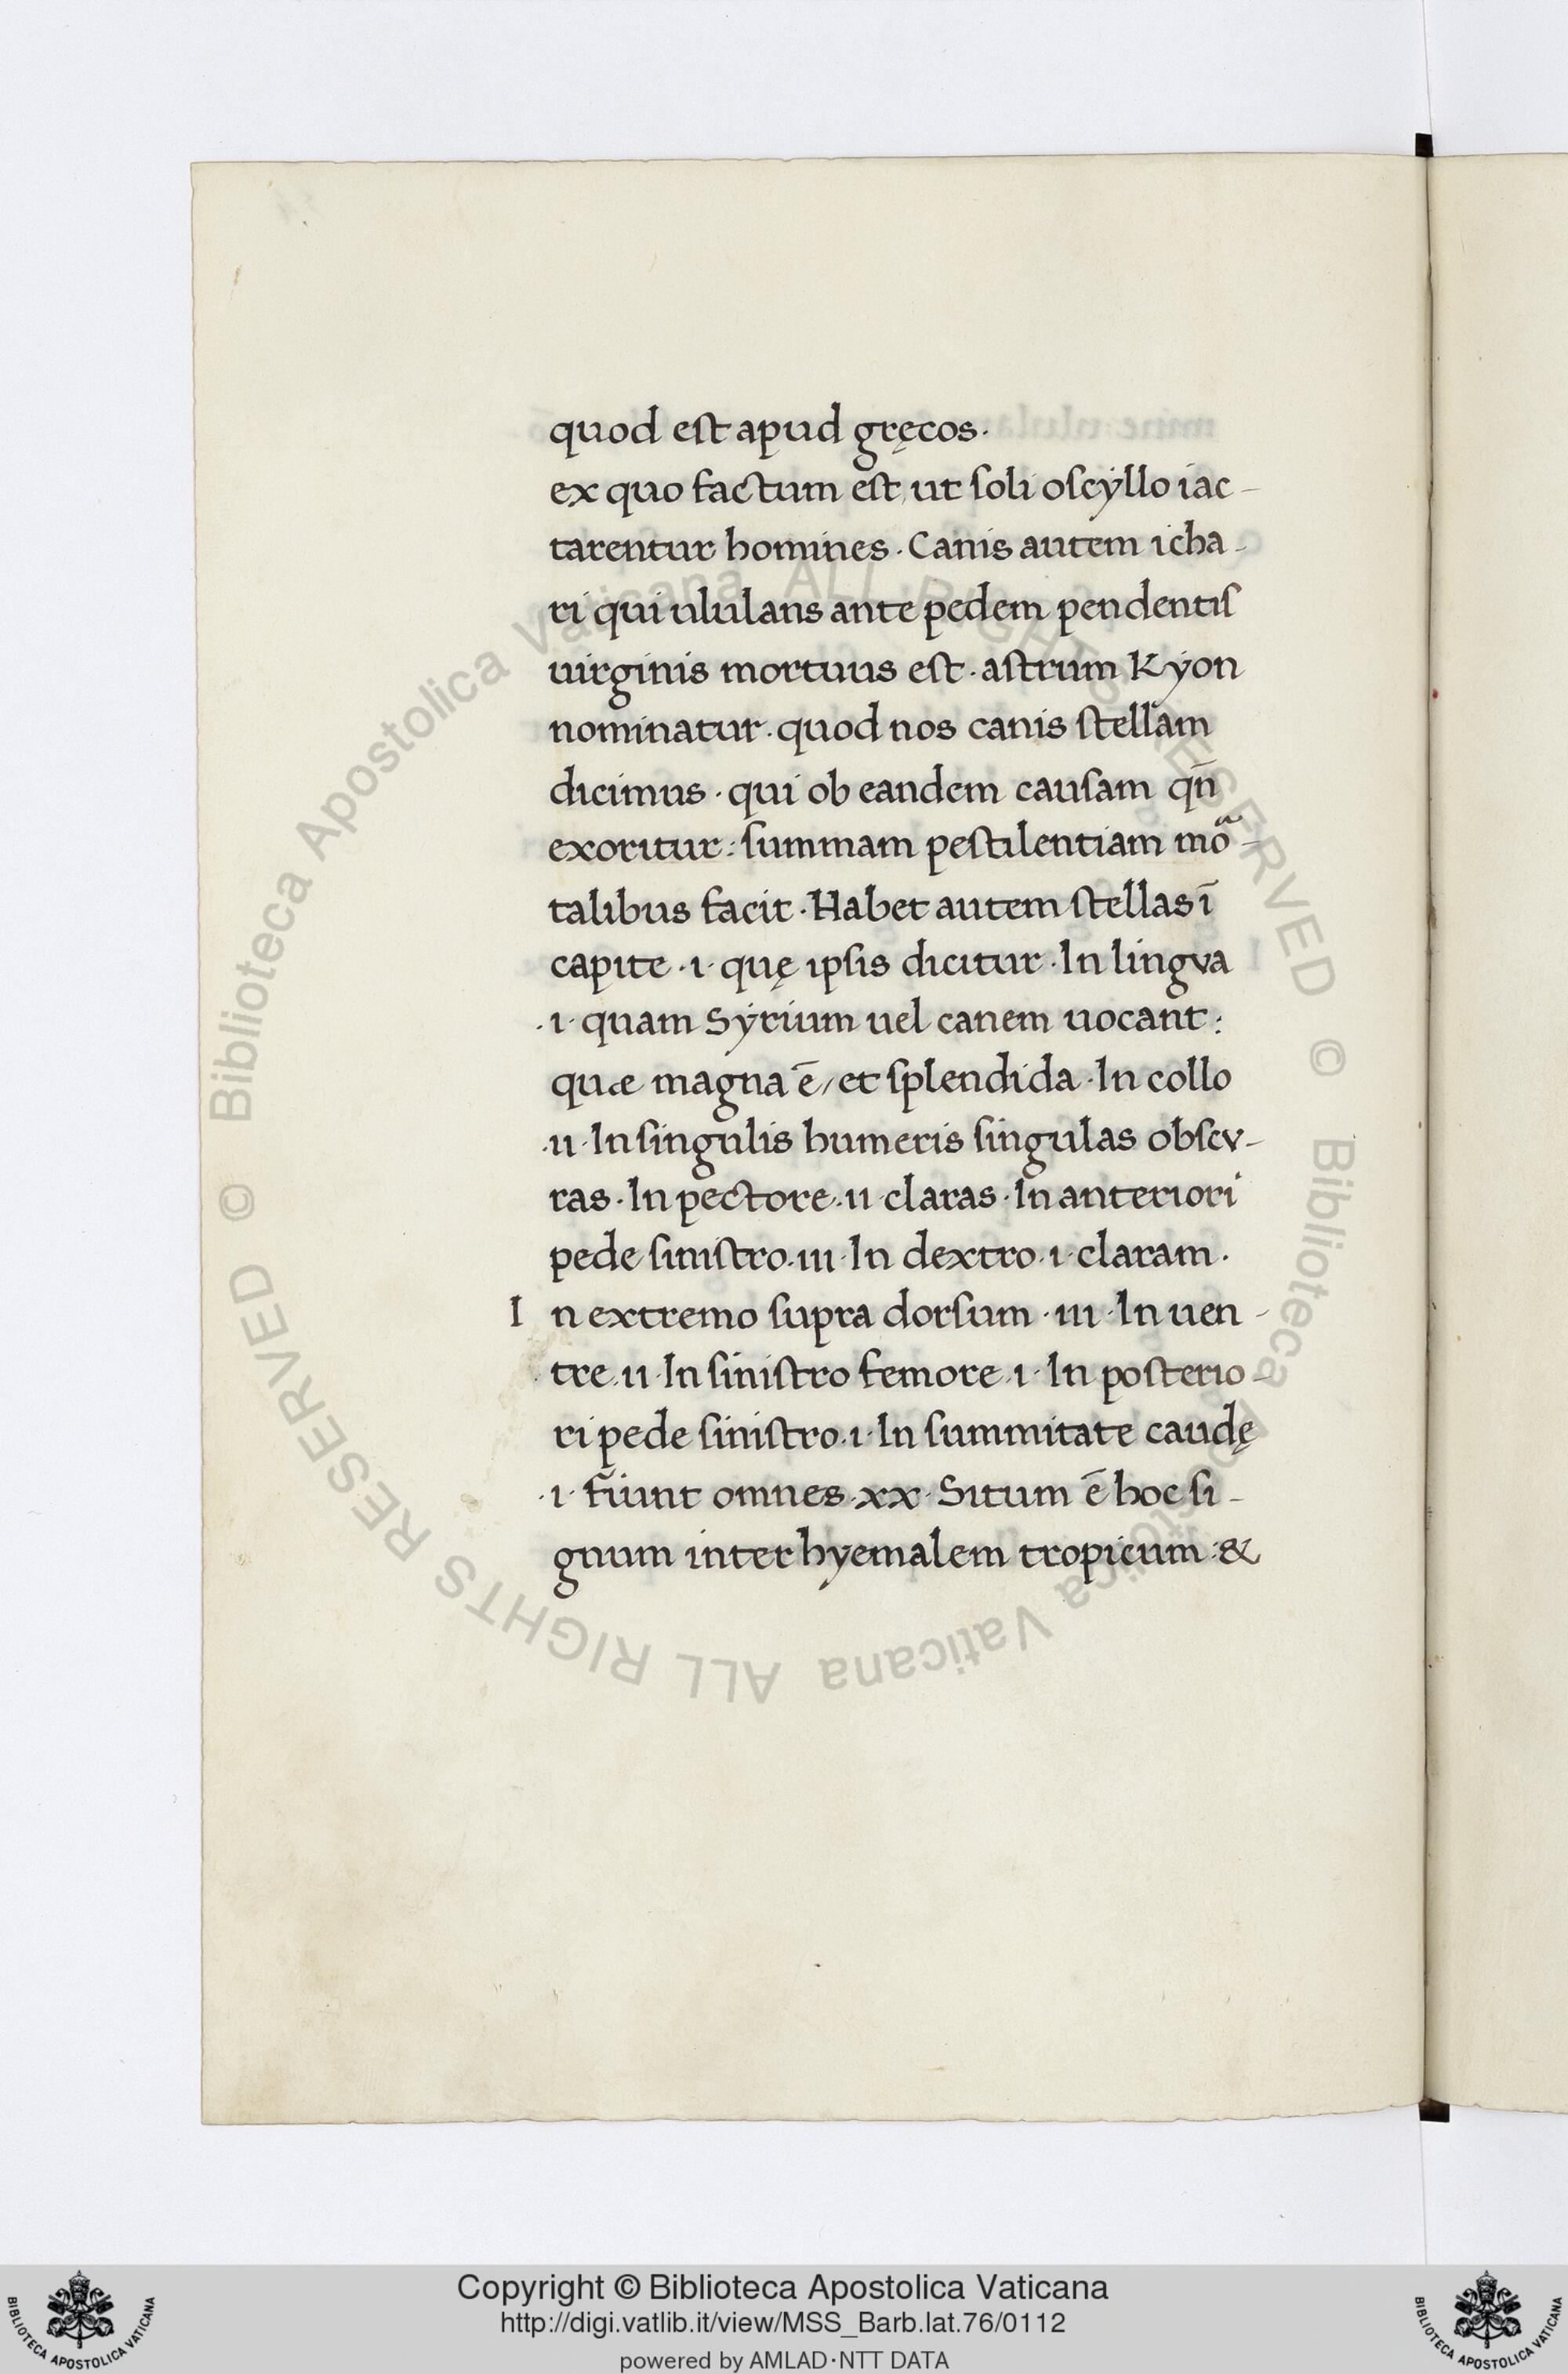 quod est apud gręcos·
ex quo factum est, ut soli oscyllo iac-
tarentur homines· Canis autem icha-
ri qui ululans ante pedem pendentis
uirginis mortuus est· astrum Kyon
nominatur· quod nos canis stellam
dicimus· qui ob eandem causam qn̄
exoritur: summam pestilentiam mõ-
talibus facit· Habet autem stellas ī
capite ·i· quę ipsis dicitur· In lingva
·i· quam Syrium uel canem uocant:
quæ magna ē, et splendida· In collo
·ii· In singulis humeris singulas obscv-
ras· In pectore ·ii· claras· In anteriori
pede sinistro ·iii· In dextro ·i· claram·
In extremo supra dorsum ·iii· In uen-
tre ·ii· In sinistro femore ·i· In posterio-
ri pede sinistro ·i· In summitate caudę
·i· fiunt omnes ·xx· Situm ē hoc si-
gnum inter hyemalem tropicum: &
Biblioteca Apostolica Vaticana ALL RIGHTS RESERVED ©
Biblioteca Apostolica Vaticana ALL RIGHTS RESERVED ©
Copyright © Biblioteca Apostolica Vaticana
http://digi.vatlib.it/view/MSS_Barb.lat.76/0112
powered by AMLAD·NTT DATA
BIBLIOTECA APOSTOLICA VATICANA
BIBLIOTECA APOSTOLICA VATICANA